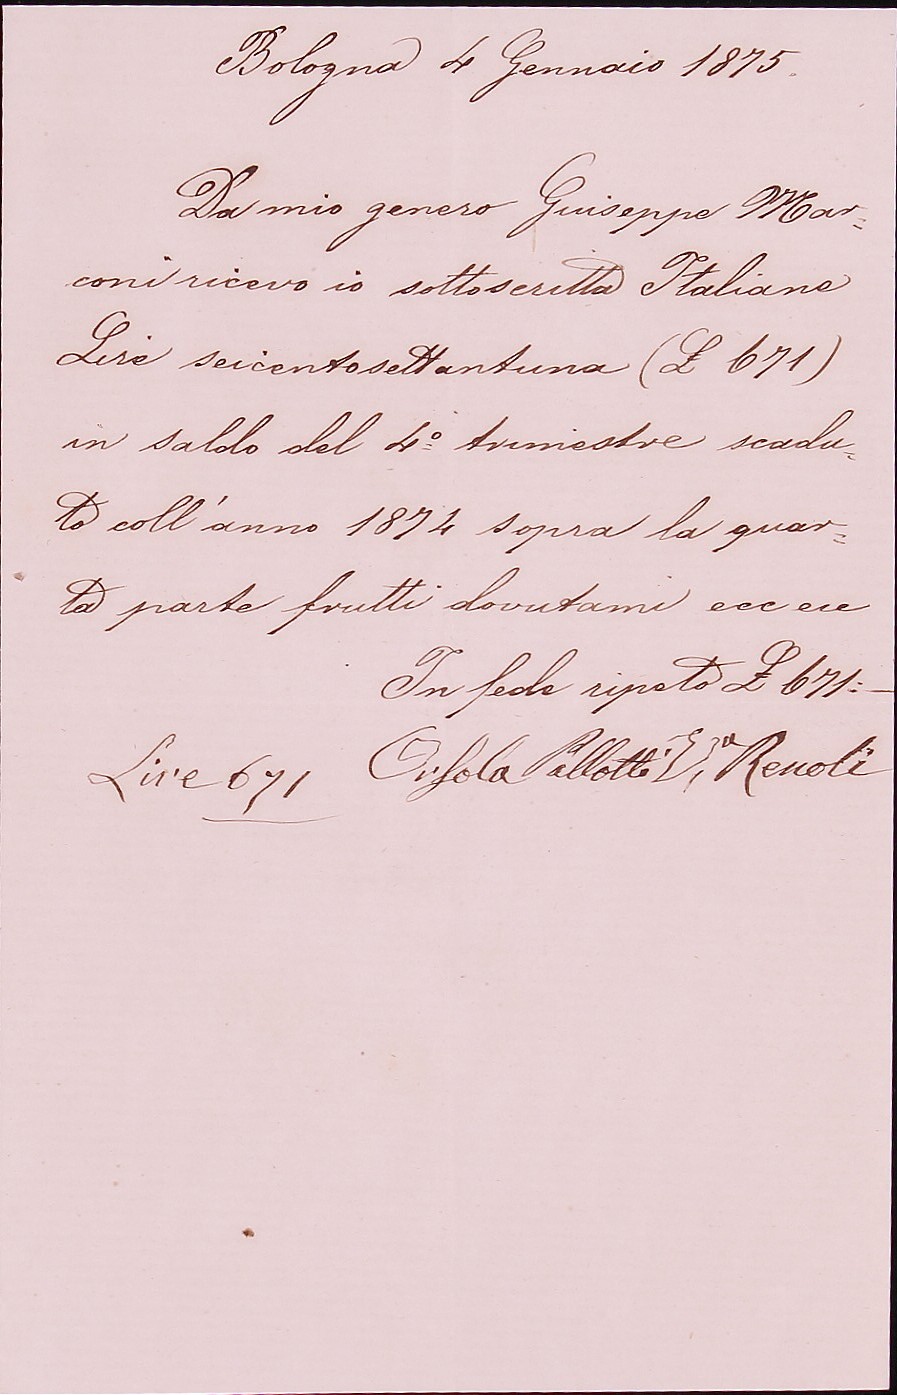 Bologna 4 Gennaio 1875.
Da mio genero Guiseppe Mar=
coni ricevo io sottoscritta Italiane
Lire seicentosettantuna (£ 671)
in saldo del 4º trimestre scadu=
to coll'anno 1874 sopra la quar=
ta parte frutti dovutami ecc ecc
In fede ripeto £ 671:—
Lire 671 Orsola Pallotti Vª Renoli